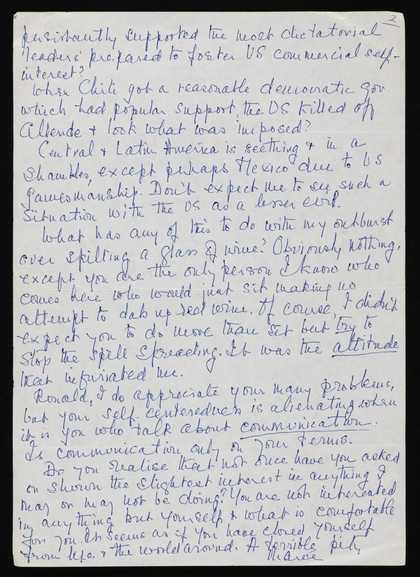 2
persistantly supported the most dictatorial
leaders prepared to foster US commercial self-
interest?
When Chile got a reasonable democratic gov
which had popular support, the US killed off
Allende & look what was imposed?
Central & Latin America is seething & in a
shambles, except perhaps Mexico due to US
gamesmanship. Don't expect me to see such a
situation with the US as a lesser evil.
What has any of this to do with my outburst
over spilling a glass of wine? Obviously nothing,
except you are the only person I know who
comes here who would just sit making no
attempt to dab up red wine. Of course, I didn't
expect you to do more than sit but try to
stop the spill spreading. It was the attitude
that infuriated me.
Ronald, I do appreciate your many problems,
but your self centeredness is alienating when
it is you who talk about communication.
Is communication only on your terms.
Do you realise that not once have you asked
or shown the slightest interest in anything I
may or may not be doing? You are not interested
in anything but yourself & what is comfortable
for you. It seems as if you have closed yourself
from life & the world around. A terrible pity